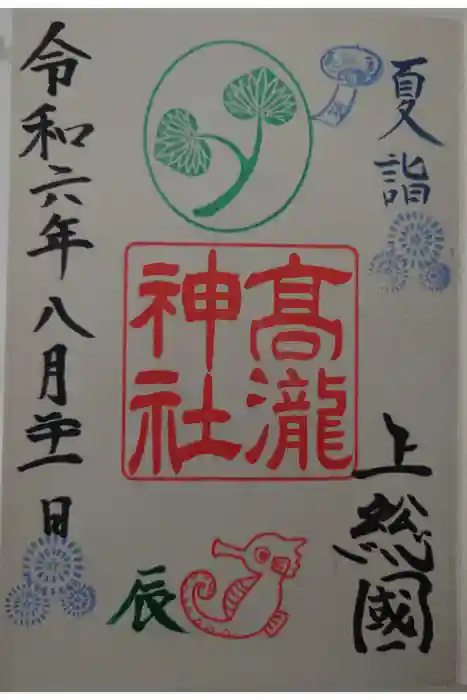 夏詣
上総國
高瀧
神社
辰
令和六年八月廿一日